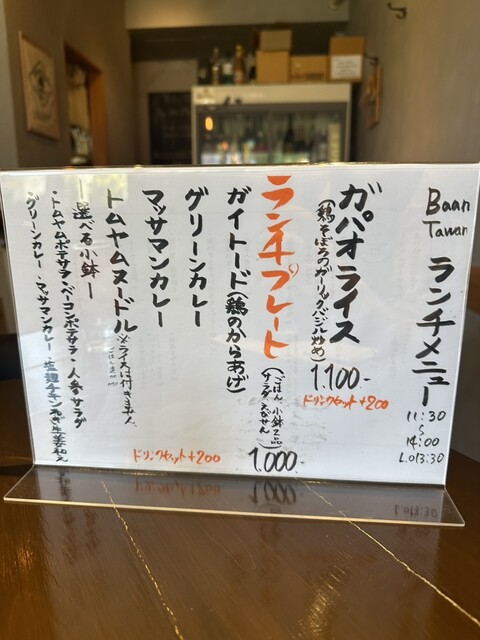 Baan
Tawan
ランチメニュー
11:30
～
14:00
L.O13:30
ガパオライス
(鶏そぼろのガーリックバジル炒め)
1.100.-
ドリンクセット+200
ランチプレート
(ごはん、小鉢2品
サラダ、えびせん)
1.000.-
ガイトード(鶏のからあげ)
グリーンカレー
マッサマンカレー
トムヤムヌードル
※ライスは付きません
ドリンクセット+200
ー選べる小鉢ー
・トムヤムポテサラ・ベーコンポテサラ・人参サラダ
・グリーンカレー・マッサマンカレー・塩麹チキンねぎ生姜和え